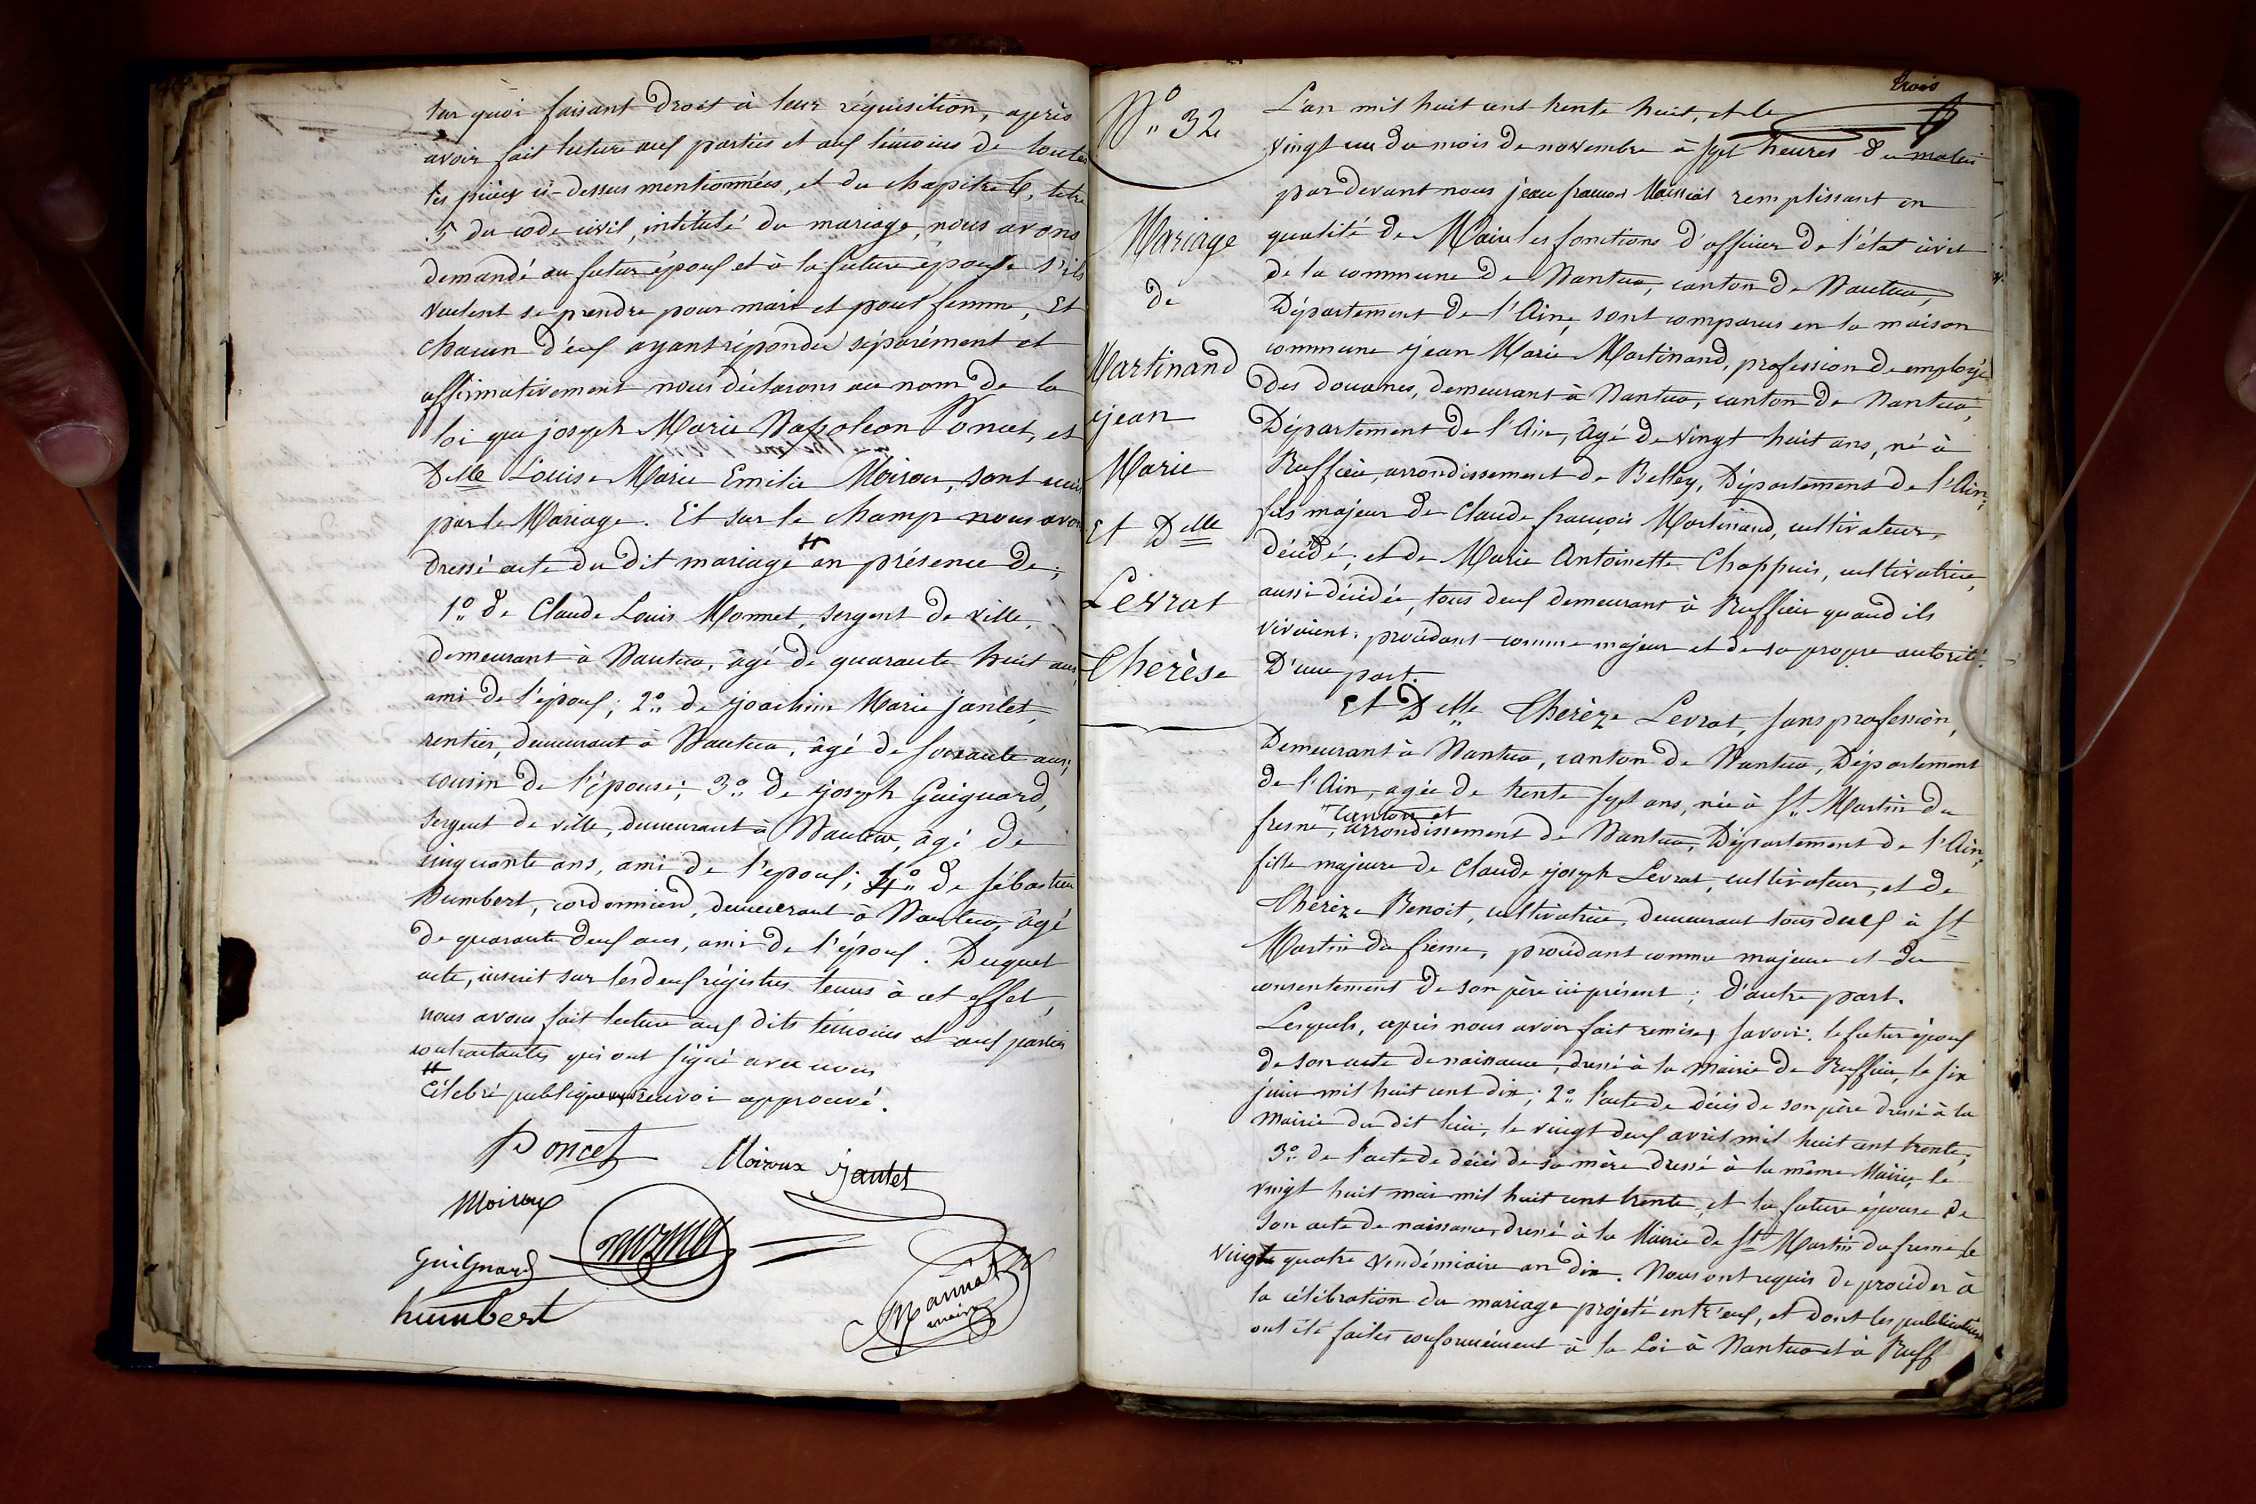 sur quoi faisant droit à leur réquisition, après
avoir fait lecture aux parties et aux témoins de toutes
les pièces ci-dessus mentionnées, et du chapitre 6, titre
5 du code civil, intitulé du mariage, nous avons
demandé au futur époux et à la future épouse s'ils
veulent se prendre pour mari et pour femme, Et
chacun d'eux ayant répondu séparément et
affirmativement nous déclarons au nom de la
loi que joseph Marie Napoléon Poncet, et
Delle Louise Marie Emilie Moiroux, sont unis
par le Mariage. Et sur le champ nous avons
Dressé acte du dit mariage # en présence de;
1° de Claude Louis Monnet, sergent de ville,
demeurant à Nantua, âgé de quarante huit ans,
ami de l'époux; 2° de joachim Marie jantet,
rentier, demeurant à Nantua, âgé de soixante ans,
cousin de l'épouse; 3° de joseph Guignard,
sergent de ville, demeurant à Nantua, âgé de
cinquante ans, ami de l'époux; 4° de sébastien
humbert, cordonnier, demeurant à Nantua, âgé
de quarante deux ans, ami de l'époux. Duquel
acte, inscrit sur les deux régistres tenus à cet effet,
nous avons fait lecture aux dits témoins et aux parties
contractantes qui ont signé avec nous
# Célébré publiquement renvoi approuvé.
Poncet Moiroux Jantet
Moiroux
Guignard monnet
humbert
maire
trois
N° 32
Mariage
de
Martinand
jean
Marie
Et Delle
Levrat
Therèse
L'an mil huit cent trente huit, et le
vingt un du mois de novembre à sept heures du matin
par devant nous jean françois remplissant en
qualité de Maire les fonctions d'officier de l'état civil
de la commune de Nantua, canton de Nantua,
Département de l'Ain, sont comparus en la maison
commune jean Marie Martinand, profession de employé
des douanes, demeurant à Nantua, canton de Nantua,
Département de l'Ain, âgé de vingt huit ans, né à
Ruffieu, arrondissement de Belley, Département de l'Ain;
fils majeur de Claude françois Martinand, cultivateur,
décédé, et de Marie Antoinette Chappuis, cultivatrice,
aussi décédée, tous deux demeurant à Ruffieu quand ils
vivaient. procédant comme majeur et de sa propre autorité.
D'une part.
Et Delle Therèze Levrat, sans profession,
Demeurant à Nantua, canton de Nantua, Département
de l'Ain, agée de trente sept ans, née à St. Martin du
canton et
fresne, arrondissement de Nantua, Département de l'Ain;
fille majeure de Claude joseph Levrat, cultivateur, et de
Thérèze Benoit, cultivatrice, demeurant tous deux à St
Martin du fresne, procédant comme majeure et du
consentement de son père ici présent; d'autre part.
Lesquels, après nous avoir fait remise, savoir: le futur époux
de son acte de naissance, dressé à la Mairie de Ruffieu, le six
juin mil huit cent dix; 2° l'acte de décès de son père dressé à la
Mairie du dit lieu, le vingt deux avril mil huit cent trente;
3° de l'acte de décès de sa mère dressé à la même Mairie, le
vingt huit mai mil huit cent trente, et la future épouse de
son acte de naissance, dressé à la Mairie de St Martin du fresne, le
vingt quatre vendémiaire an dix. Nous ont requis de procéder à
la célébration du mariage projeté entr'eux, et dont les publications
ont été faites conformément à la Loi à Nantua et à Ruff